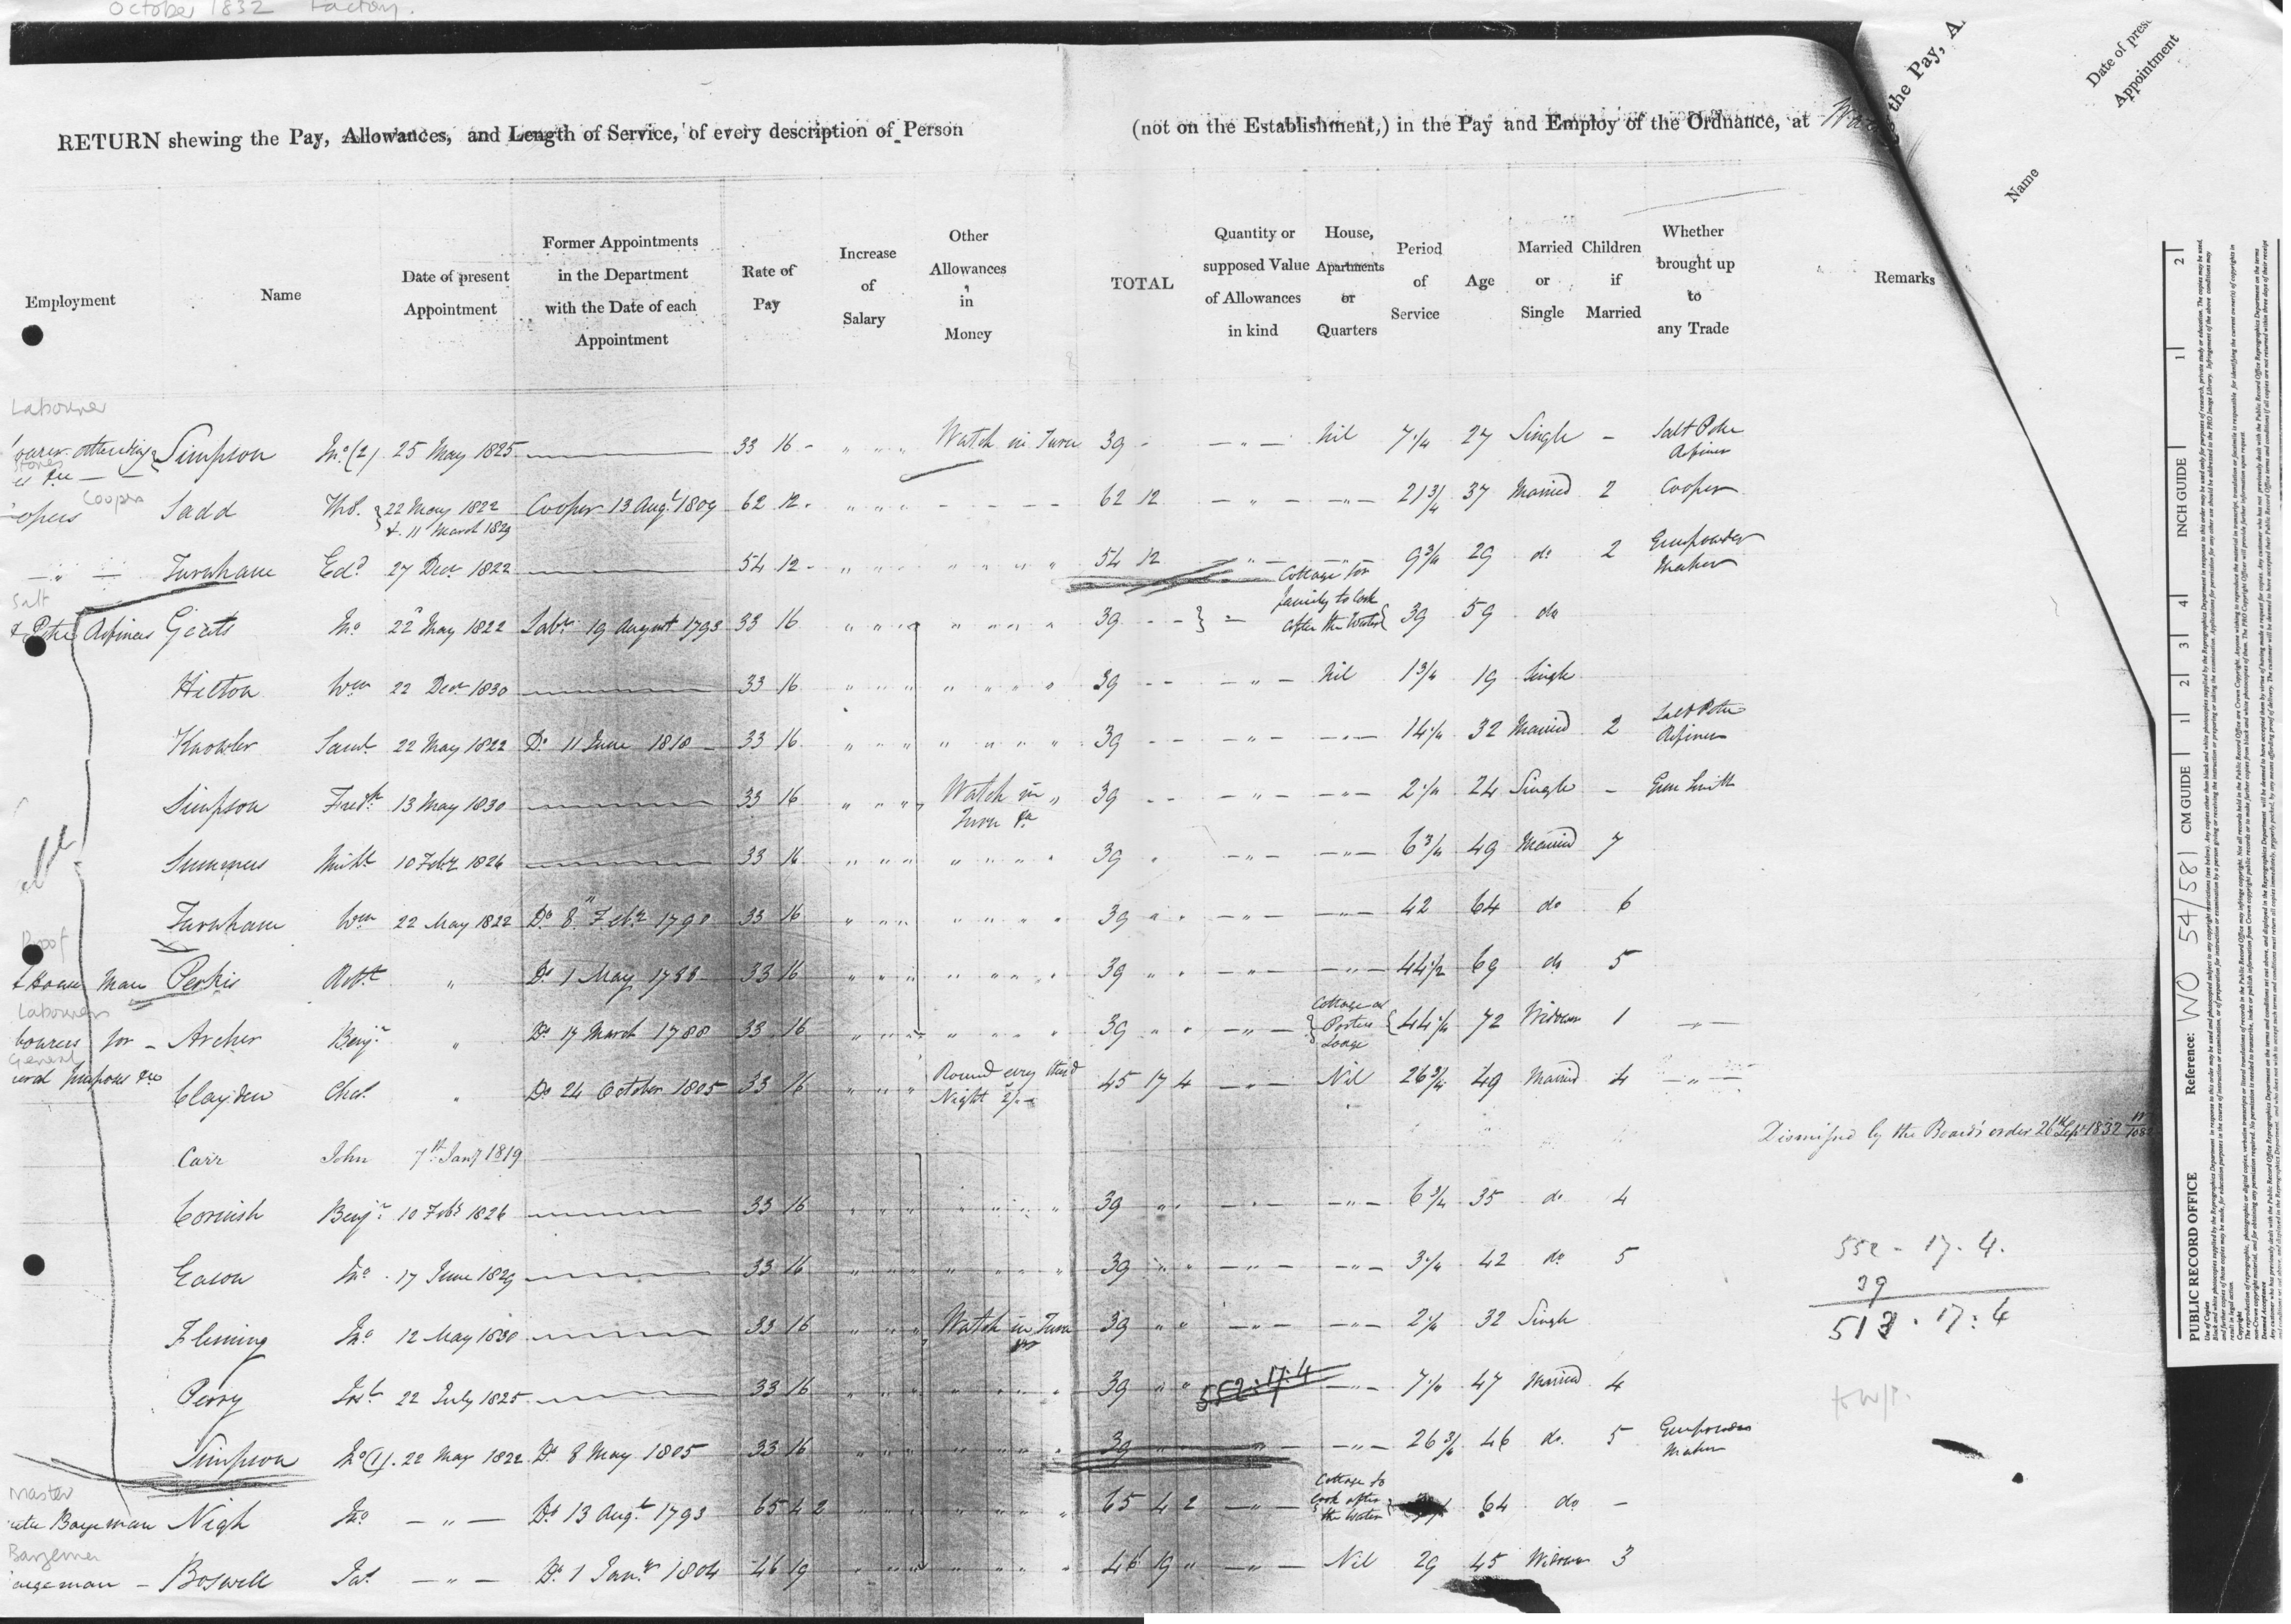 October 1832 Factory.
RETURN shewing the Pay, Allowances, and Length of Service, of every description of Person (not on the Establishment,) in the Pay and Employ of the Ordnance, at
the Pay, A
Date of pres
Appointment
Name
Employment
Name
Date of present Appointment
Former Appointments in the Department with the Date of each Appointment
Rate of Pay
Increase of Salary
Other Allowances in Money
TOTAL
Quantity or supposed Value of Allowances in kind
House, Apartments or Quarters
Period of Service
Age
Married or Single
Children if Married
Whether brought up to any Trade
Remarks
Labourer
attending Simpson Jno (2) 25 May 1825 33 16 - Watch in Turn 39 - — " — Nil 7 1/4 27 Single - Salt Petre Refiner
Stores
Coopers
opers Sadd Thos. } 22 May 1822 & 11 March 1829 Cooper 13 Augt 1809 62 12 - 62 12 — " — — " — 21 3/4 37 Married 2 Cooper
— " — Turnham Edd 27 Decr 1822 54 12 - 54 12 — " — 9 3/4 29 do 2 Gunpowder Maker
Salt
Petre Refiners Geats Jno 22 May 1822 Labr 19 August 1793 33 16 39 - - } Cottage for family to look after the Water { 39 59 do
Hilton Wm 22 Decr 1830 33 16 39 - - — " — Nil 1 3/4 19 Single
Knowler Saml 22 May 1822 Do 11 June 1818 33 16 39 - - — " — — " — 14 1/4 32 Married 2 Salt Petre Refiner
Simpson Fredk 13 May 1830 33 16 Watch in Turn &c 39 - - — " — — " — 2 1/4 24 Single - Gun Smith
Summers 10 Feby 1826 33 16 39 — " — — " — 6 3/4 49 Married 7
Turnham Wm 22 May 1822 Do 8 Feby 1790 33 16 39 — " — — " — 42 64 do 6
Proof
House Man Perkis Robt " Do 1 May 1788 33 16 39 — " — — " — 44 1/2 69 do 5
Labourers
bourers for - Archer Benjn " Do 17 March 1788 33 16 39 — " — } Cottage at Porters Lodge { 44 1/2 72 Widower 1 — " —
General
eral purposes &c Clayden Chas. " Do 24 October 1805 33 16 Round every third Night 2/- 45 17 4 — " — Nil 26 3/4 49 Married 4 — " —
Carr John 7th Jany 1819 Dismissed by the Board's order 26th Sept 1832
Cornish Benjn 10 Feby 1826 33 16 39 — " — — " — 6 3/4 35 do 4
Eason Jno 17 June 1829 33 16 39 — " — — " — 3 1/4 42 do 5
552 - 17. 4.
39
513 . 17 : 4
Fleming Jno 12 May 1830 33 16 Watch in Turn 39 — " — — " — 2 1/4 32 Single
Perry 22 July 1825 33 16 39 552 : 17 : 4 — " — 7 1/4 47 Married 4
Simpson Jno (1) 22 May 1822 Do 8 May 1805 33 16 39 — " — 26 3/4 46 do 5 Gunpowder Maker
Master
Bargeman Nigh Jno — " — Do 13 Augt 1793 65 4 2 65 4 2 — " — Cottage to look after the Water { 64 do -
Bargeman
argeman - Boswell Jas — " — Do 1 Jany 1804 46 19 46 19 " — " — Nil 29 45 Widower 3
PUBLIC RECORD OFFICE Reference: WO 54/581 CM GUIDE 1 2 3 4 INCH GUIDE 1 2